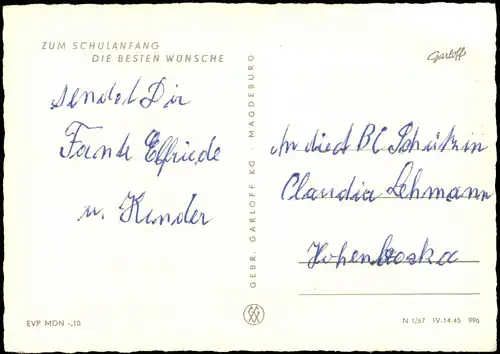 ZUM SCHULANFANG
DIE BESTEN WÜNSCHE
sendet Dir
Tante Elfriede
u. Kinder
EVP MDN -,10
GEBR. GARLOFF KG · MAGDEBURG
Garloff
An die ABC Schützin
Claudia Lehmann
Hohenbocka
N 1/67 IV-14-45 996